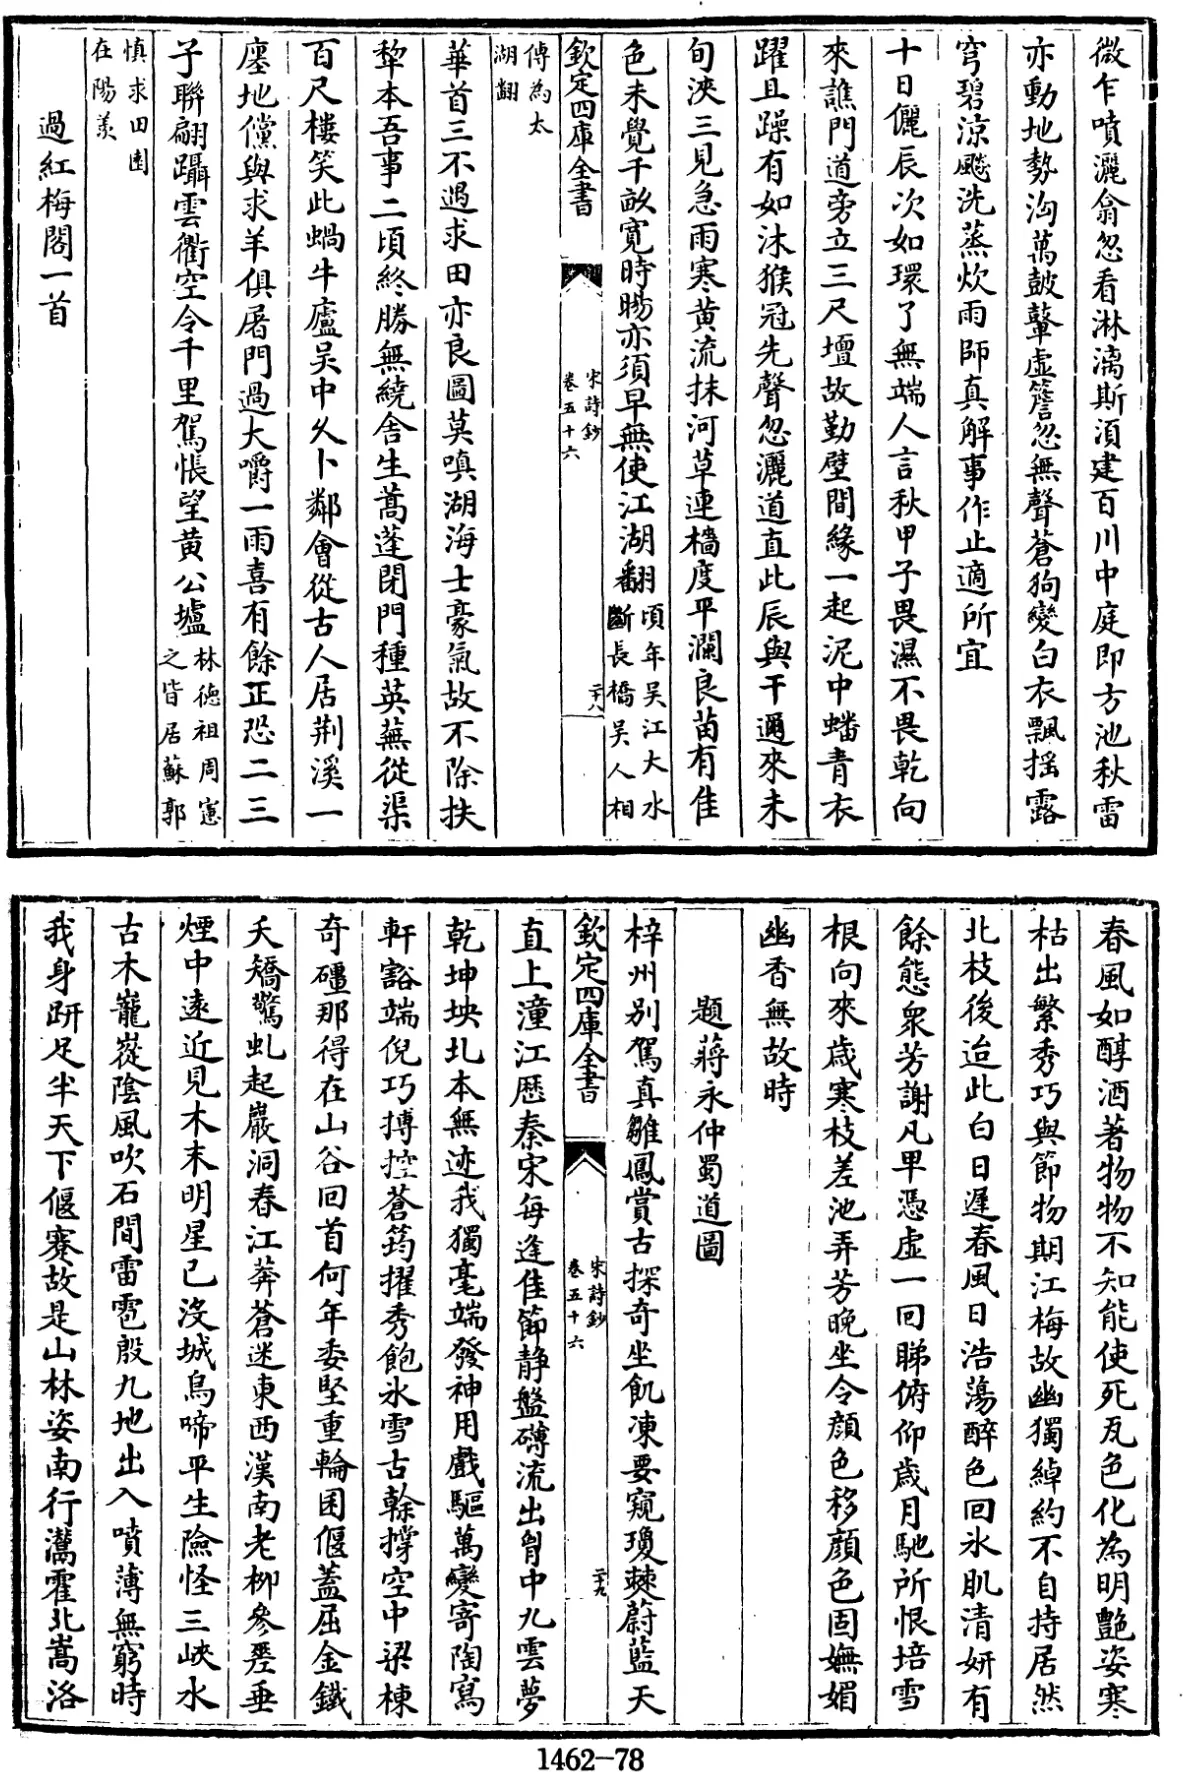 微乍噴灑翕忽看淋漓斯湏建百川中庭即方池秋雷
亦動地勢洶萬鼓鼙虛簷忽無聲蒼狗變白衣飄揺露
穹碧涼飈洗蒸炊雨師真解事作止適所宜
十日儷辰次如環了無端人言秋甲子畏濕不畏乾向
來譙門道旁立三尺壇故勤壁間緣一起泥中蟠青衣
躍且躁有如沐猴冠先聲忽灑道直此辰與干邇來未
旬浹三見急雨寒黄流抹河草連檣度平瀾良苗有隹
色未覺千畝寛時暘亦須早無使江湖翻頃年吴江大水
斷長橋吴人相
欽定四庫全書
宋詩鈔
卷五十六
二十八
傳為太
湖翻
華首三不遇求田亦良圖莫嗔湖海士豪氣故不除扶
犂本吾事二頃終勝無繞舎生蒿蓬閉門種英蕪従渠
百尺樓笑此蝸牛廬吴中久卜鄰會從古人居荆溪一
廛地儻與求羊俱屠門過大嚼一雨喜有餘正恐二三
子聯翩躡雲衢空令千里駕悵望黄公壚林德祖周憲
之皆居蘇郭
慎求田圃
在陽羡
過紅梅閣一首
春風如醇酒著物物不知能使死瓦色化為明艶姿寒
枯出繁秀巧與節物期江梅故幽獨綽約不自持居然
北枝後迨此白日遲春風日浩蕩醉色回氷肌清妍有
餘態衆芳謝凡卑憑虛一回睇俯仰歳月馳所恨培雪
根向來歳寒枝差池弄芳晚坐令顔色移顔色固嫵媚
幽香無故時
題蔣永仲蜀道圖
梓州别駕真雛鳳賞古探奇坐飢凍要窺瓊䕷蔚藍天
欽定四庫全書
宋詩鈔
卷五十六
二十九
直上潼江歴秦宋每逢佳節静盤礴流出胷中九雲夢
乾坤坱圠本無迹我獨毫端發神用戲驅萬變寄陶寫
軒豁端倪巧摶控蒼筠擢秀飽氷雪古榦撑空中梁棟
奇礓那得在山谷回首何年委堅重輪囷偃蓋屈金鐵
夭矯驚虬起巖洞春江莽蒼迷東西漢南老柳參差垂
煙中逺近見木末明星已沒城烏啼平生險怪三峽水
古木巃嵸陰風吹石間雷雹殷九地出入噴薄無窮時
我身趼足半天下偃蹇故是山林姿南行灊霍北嵩洛
1462-78